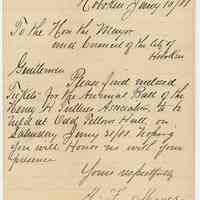 Hoboken Jany 10/88
To the Hon the Mayor
and Council of the City of
Hoboken
Gentlemen
Please find enclosed
Tickets for the Annual Ball of the
Henry
Association to be
held at Odd Fellows Hall, on
Saturday Jany 21/88 hoping
you will Honor us with your
presence
Yours respectfully